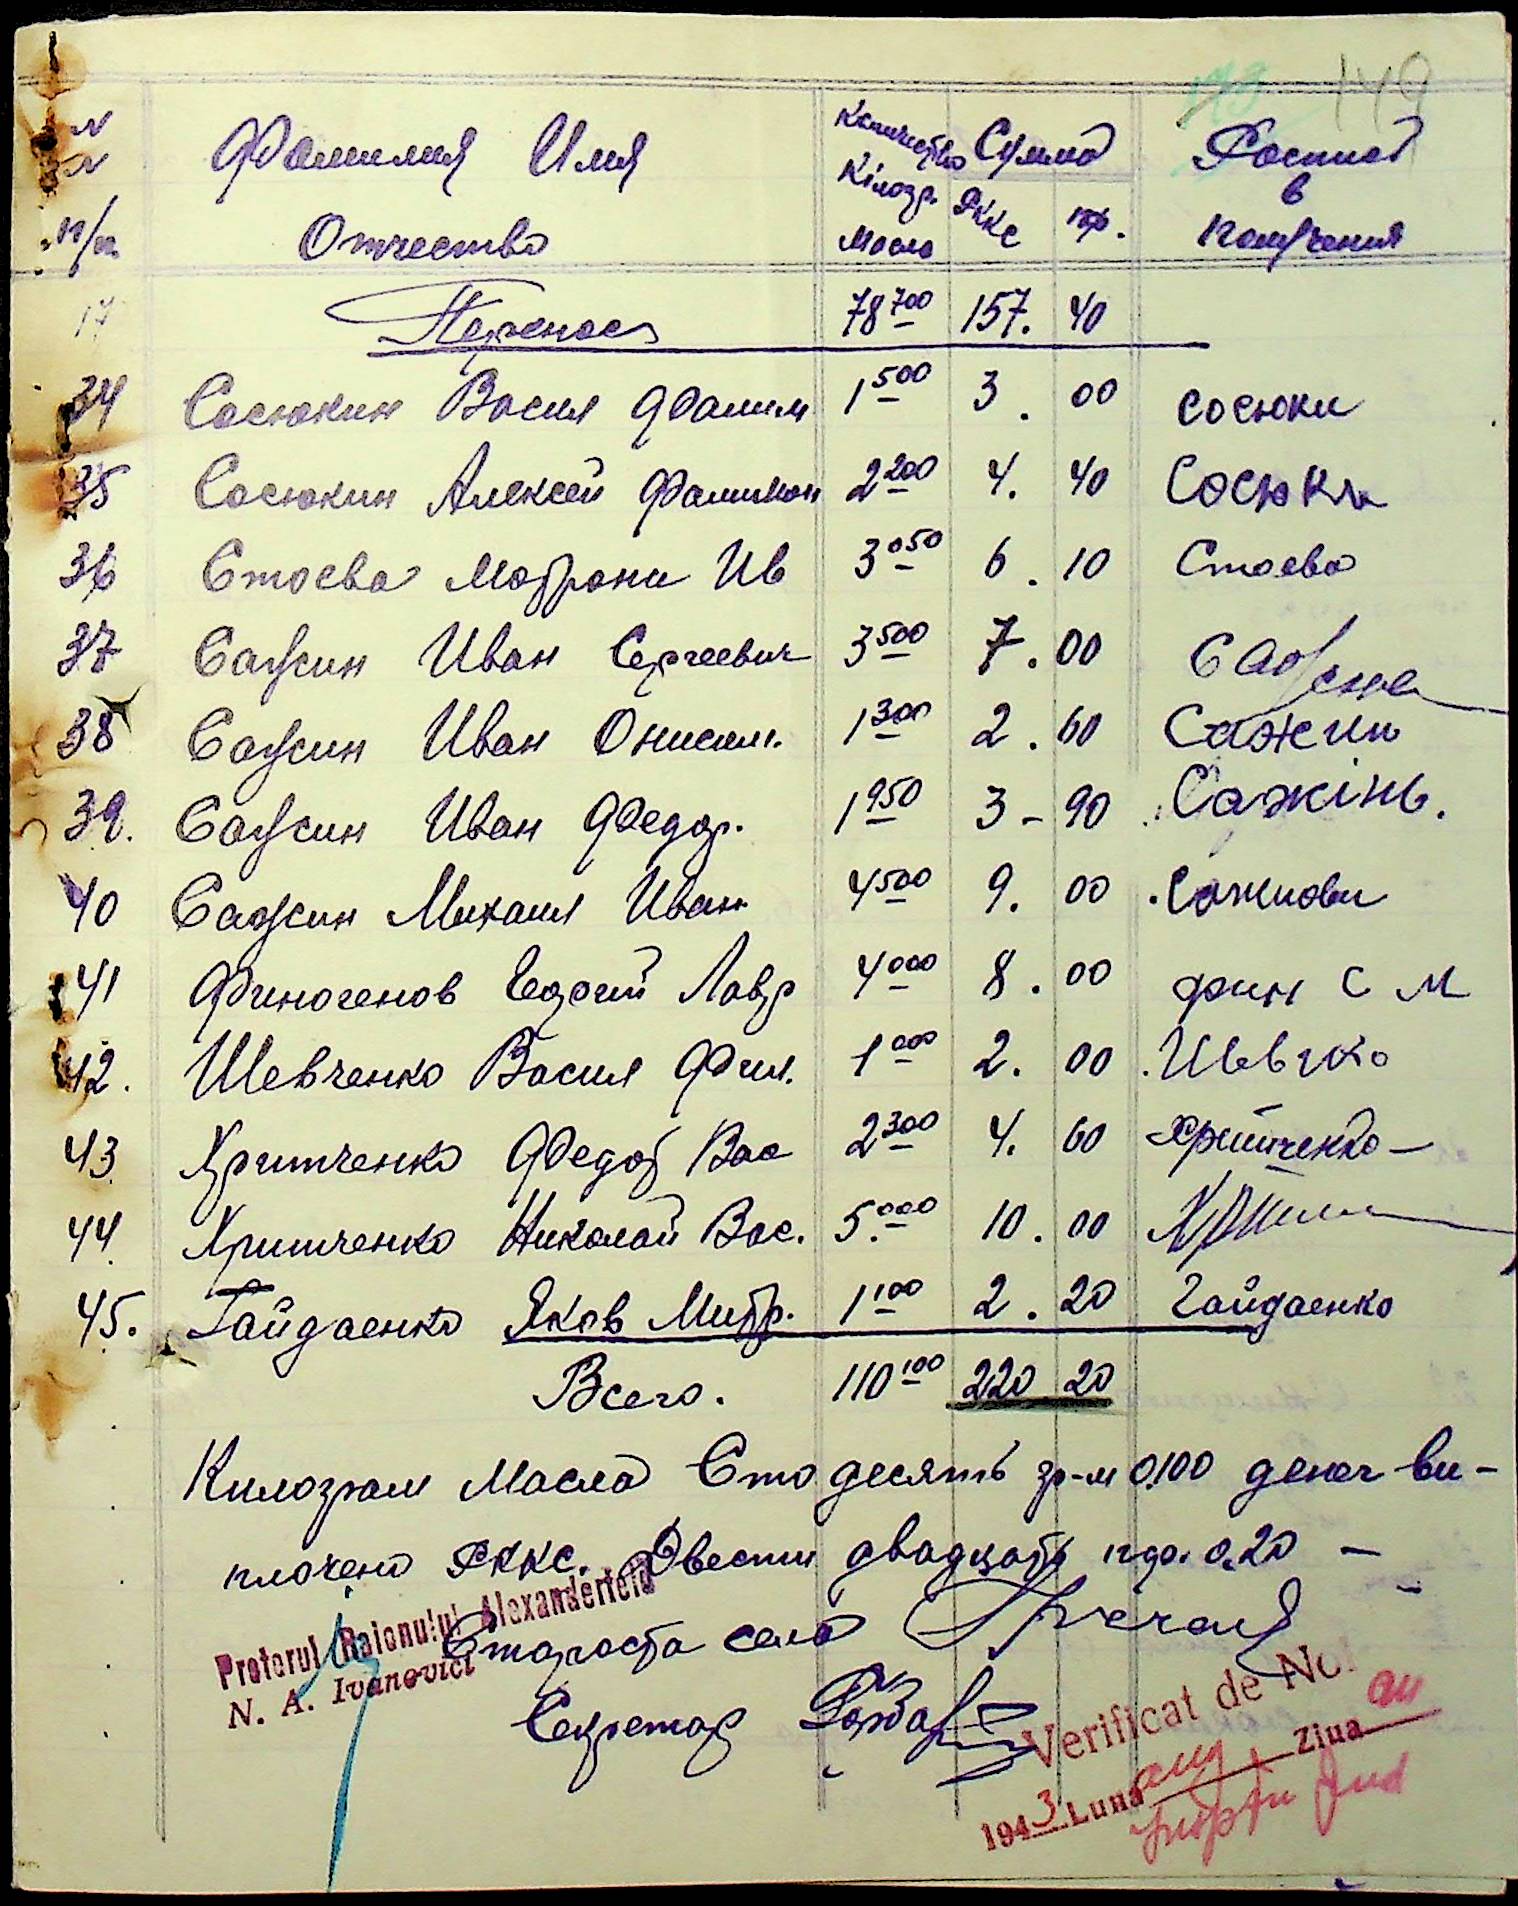 149
N Фамилия Имя Количество Сумма Роспис
N Кілогр. РККС пф. в
п/п Отчество Масла получения
17 Перенос 78 700 157. 40
34 Сосюкин Васил Фалим 1 500 3. 00 сосюки
35 Сосюкин Алексей Фалимон 2 200 4. 40 Сосюки
36 Стоева Мотрона Ив 3 050 6. 10 Стоева
37 Сажин Иван Сергеевич 3 500 7. 00
38 Сажин Иван Онисим. 1 300 2. 60 Сажин
39. Сажин Иван Федор. 1 950 3 - 90 Сажінь.
40 Сажин Михаил Иван 4 500 9. 00
41 Финогенов Георгий Лавр 4 000 8. 00 фин С М
42. Шевченко Васил Фил. 1 000 2. 00
43 Хритченко Федор Вас 2 300 4. 60 Хритченко
44. Хритченко Николай Вас. 5. 000 10. 00
45. Гайдаенко Яков Митр. 1 100 2. 20 Гайдаенко
Всего. 110 100 220 20
Килограм Масла Сто десять гр-м 0,100 денег ви-
плочено РККС. Двести двадцать пф. 0,20 —
Pretorul Raionului Alexanderfeld
Староста села
N. A. Ivanovici
Секретар
Verificat de Noi
1943 Luna aug Ziua